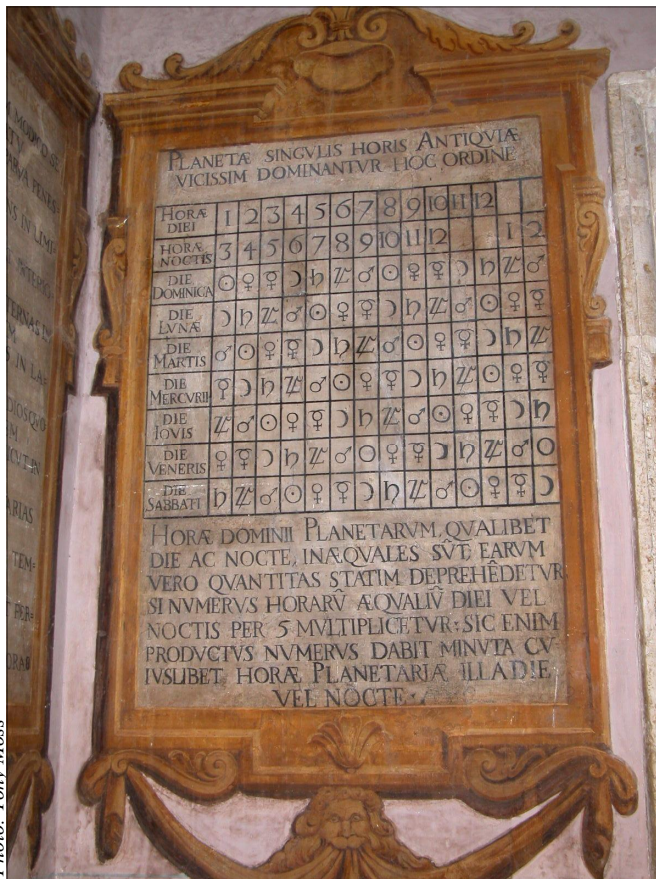 PLANETÆ SINGVLIS HORIS ANTIQVIÆ
VICISSIM DOMINANTVR HOC ORDINE
HORÆ
DIEI 1 2 3 4 5 6 7 8 9 10 11 12
HORÆ
NOCTIS 3 4 5 6 7 8 9 10 11 12 1 2
DIE
DOMINICA ☉ ♀ ☿ ☽ ♄ ♃ ♂ ☉ ♀ ☿ ☽ ♄ ♃ ♂
DIE
LVNÆ ☽ ♄ ♃ ♂ ☉ ♀ ☿ ☽ ♄ ♃ ♂ ☉ ♀ ☿
DIE
MARTIS ♂ ☉ ♀ ☿ ☽ ♄ ♃ ♂ ☉ ♀ ☿ ☽ ♄ ♃
DIE
MERCVRII ☿ ☽ ♄ ♃ ♂ ☉ ♀ ☿ ☽ ♄ ♃ ♂ ☉ ♀
DIE
IOVIS ♃ ♂ ☉ ♀ ☿ ☽ ♄ ♃ ♂ ☉ ♀ ☿ ☽ ♄
DIE
VENERIS ♀ ☿ ☽ ♄ ♃ ♂ ☉ ♀ ☿ ☽ ♄ ♃ ♂ ☉
DIE
SABBATI ♄ ♃ ♂ ☉ ♀ ☿ ☽ ♄ ♃ ♂ ☉ ♀ ☿ ☽
HORÆ DOMINII PLANETARVM, QVALIBET
DIE AC NOCTE, INÆQVALES SV̂T: EARVM
VERO QVANTITAS STATIM DEPREHÊDETVR
SI NVMERVS HORARV̂ ÆQVALIV̂ DIEI VEL
NOCTIS PER 5 MVLTIPLICETVR: SIC ENIM
PRODVCTVS NVMERVS DABIT MINVTA CV
IVSLIBET HORÆ PLANETARIÆ ILLA DIE
VEL NOCTE.
Photo: Tony Moss